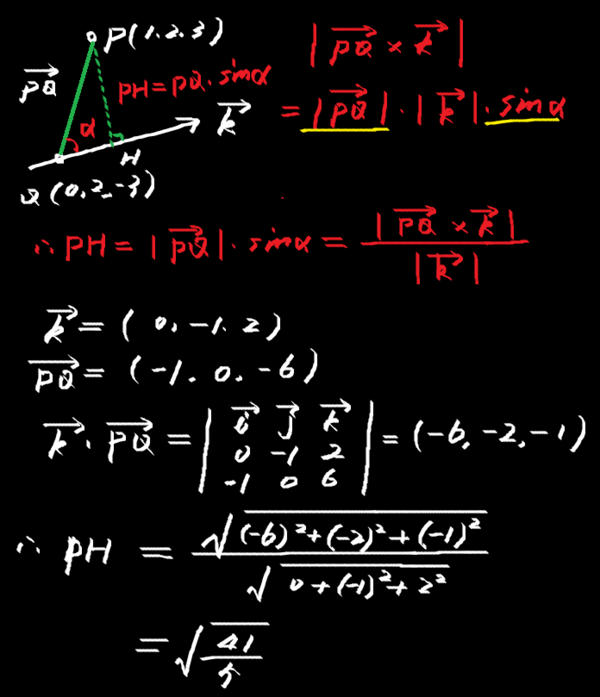 P(1,2,3)
→PQ
PH=PQ·sinα
α
→k
H
Q(0,2,-3)
|→PQ × →k|
= |→PQ|·|→k|·sinα
∴ PH = |→PQ|·sinα = |→PQ × →k| / |→k|
→k = (0, -1, 2)
→PQ = (-1, 0, -6)
→k · →PQ = | →i →j →k | = (-6, -2, -1)
0 -1 2
-1 0 6
∴ PH = √((-6)²+(-2)²+(-1)²) / √(0+(-1)²+2²)
= √(41/5)